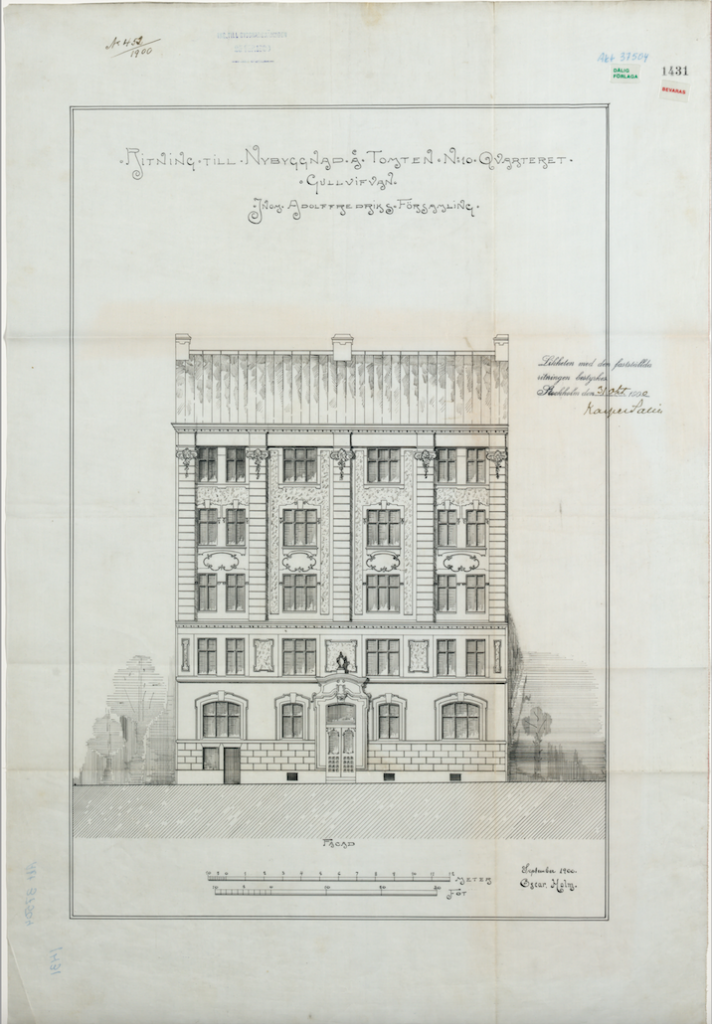 № 453
1900
Akt 37504
DÅLIG
FÖRLAGA
1431
BEVARAS
Ritning·till·Nybyggnad·å·Tomten·N:10·Qvarteret·
·Gullvifvan·
·Inom·Adolf Fredriks·Församling·
Likheten med den fastställda
ritningen bestyrkes
Stockholm den 31 okt. 1900
Kasper Salin
Facad
Meter
Fot
September 1900.
Oscar Holm.
1431